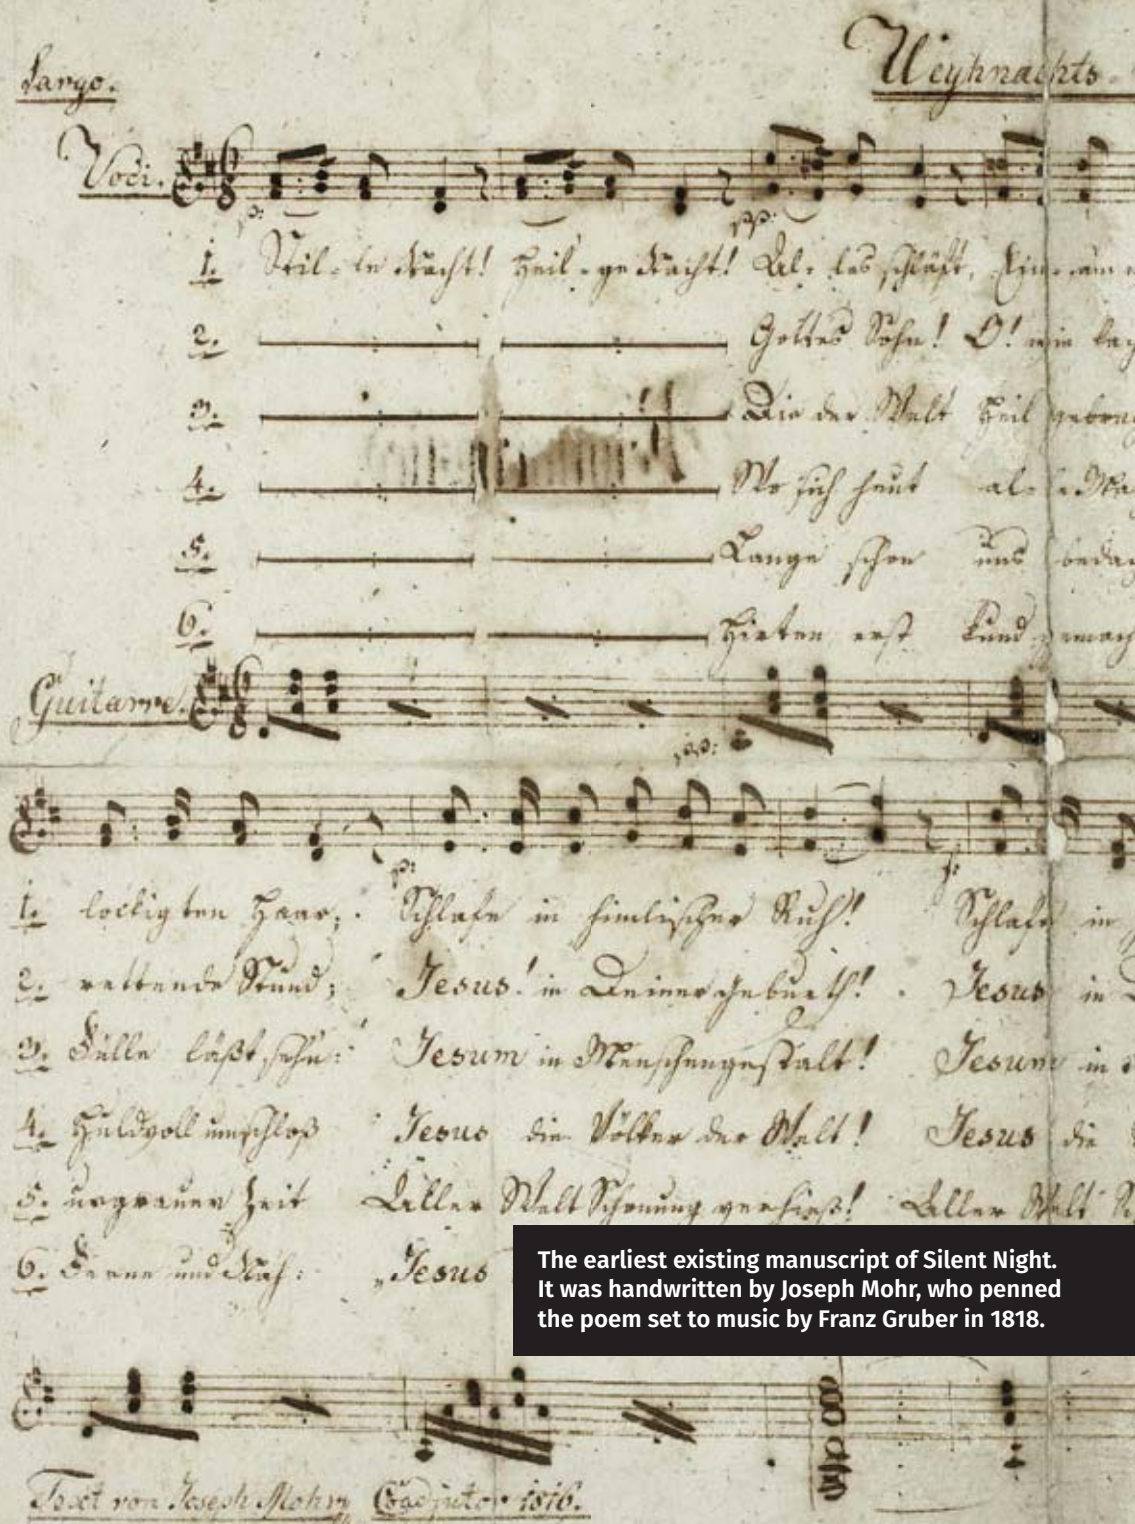 Largo.
Weyhnachts-
Voci.
p: pp:
1. Stil-le Nacht! Heil-ge Nacht! Al-les schläft, Ein-sam
2. Gottes Sohn! O! wie
3. Die der Welt Heil
4. Wo sich heut al-le
5. Lange schon uns
6. Hirten erst Kund
Guitarre.
pp:
p: f:
1. lockigten Haar; Schlafe in himlischer Ruh! Schlafe in
2. rettende Stund; Jesus! in Deiner Geburth! Jesus in
3. Fülle läßt sehn: Jesum in Menschengestalt! Jesum in
4. Huldvoll umschloß Jesus die Völker der Welt! Jesus die
5. urgrauer Zeit Aller Welt Schonung verhieß! Aller Welt
6. Ferne und Nah: Jesus
The earliest existing manuscript of Silent Night.
It was handwritten by Joseph Mohr, who penned
the poem set to music by Franz Gruber in 1818.
Text von Joseph Mohr Coadjutor 1816.